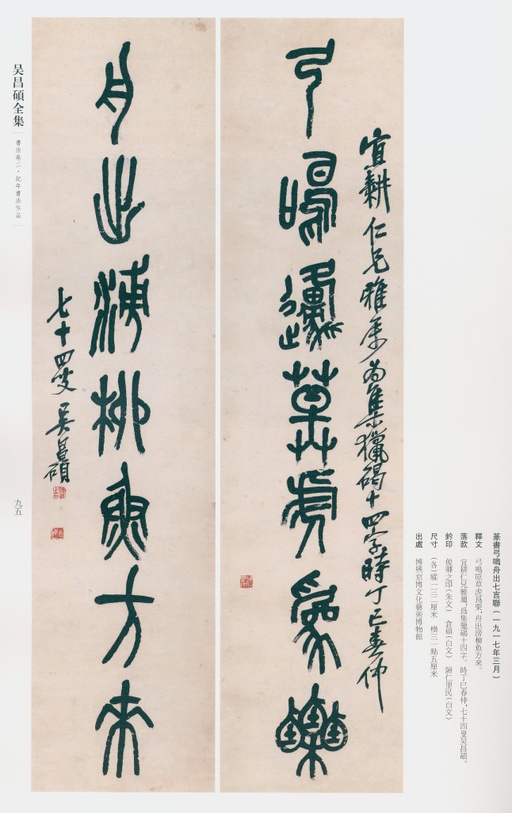 篆書弓鳴舟出七言聯(一九一七年三月)
釋文 弓鳴原草虎爲栗,舟出滂柳魚方來。
落款 宜耕仁兄雅屬,爲集獵碣十四字。時丁巳春仲,七十四叟吳昌碩。
鈐印 俊卿之印(朱文) 倉碩(白文) 歸仁里民(白文)
尺寸 (各)縱一三二厘米 橫三一點五厘米
出處 博興京博文化藝術博物館
宜耕仁兄雅屬爲集獵碣十四字時丁巳春仲
弓鳴邍草虎爲栗
舟出滂柳魚方來
七十四叟吳昌碩
吳昌碩全集
書法卷二·紀年書法作品
九五